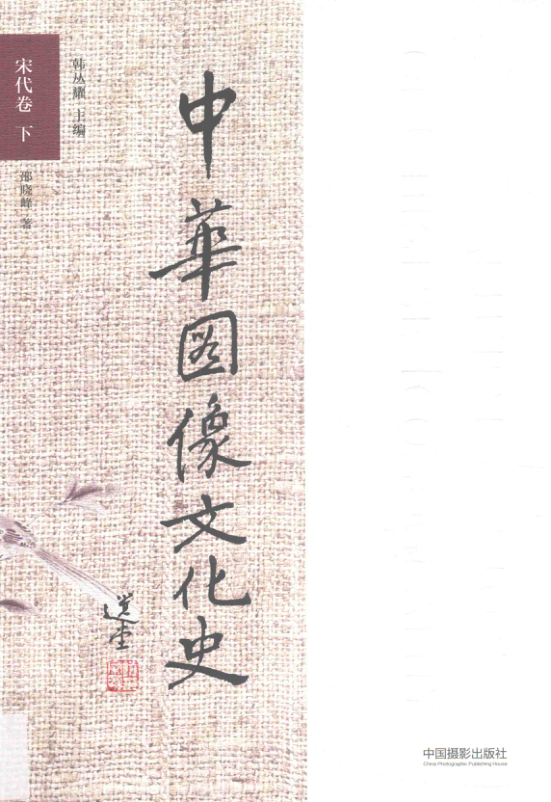 宋代卷 下
韩丛耀 主编
邵晓峰 著
中華图像文化史
选堂
中国摄影出版社
China Photographic Publishing House